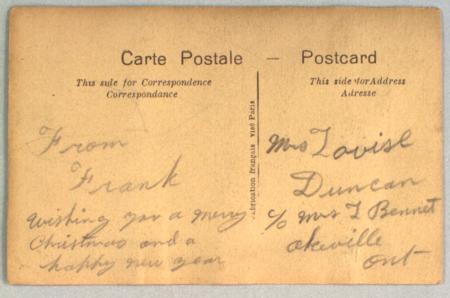 Carte Postale — Postcard
This side for Correspondence
Correspondance
This side for Address
Adresse
Fabrication française visé Paris
From
Frank
Wishing you a Merry
Christmas and a
happy new year
Mrs Louise
Duncan
c/o Mrs T Bennet
okeville
ont